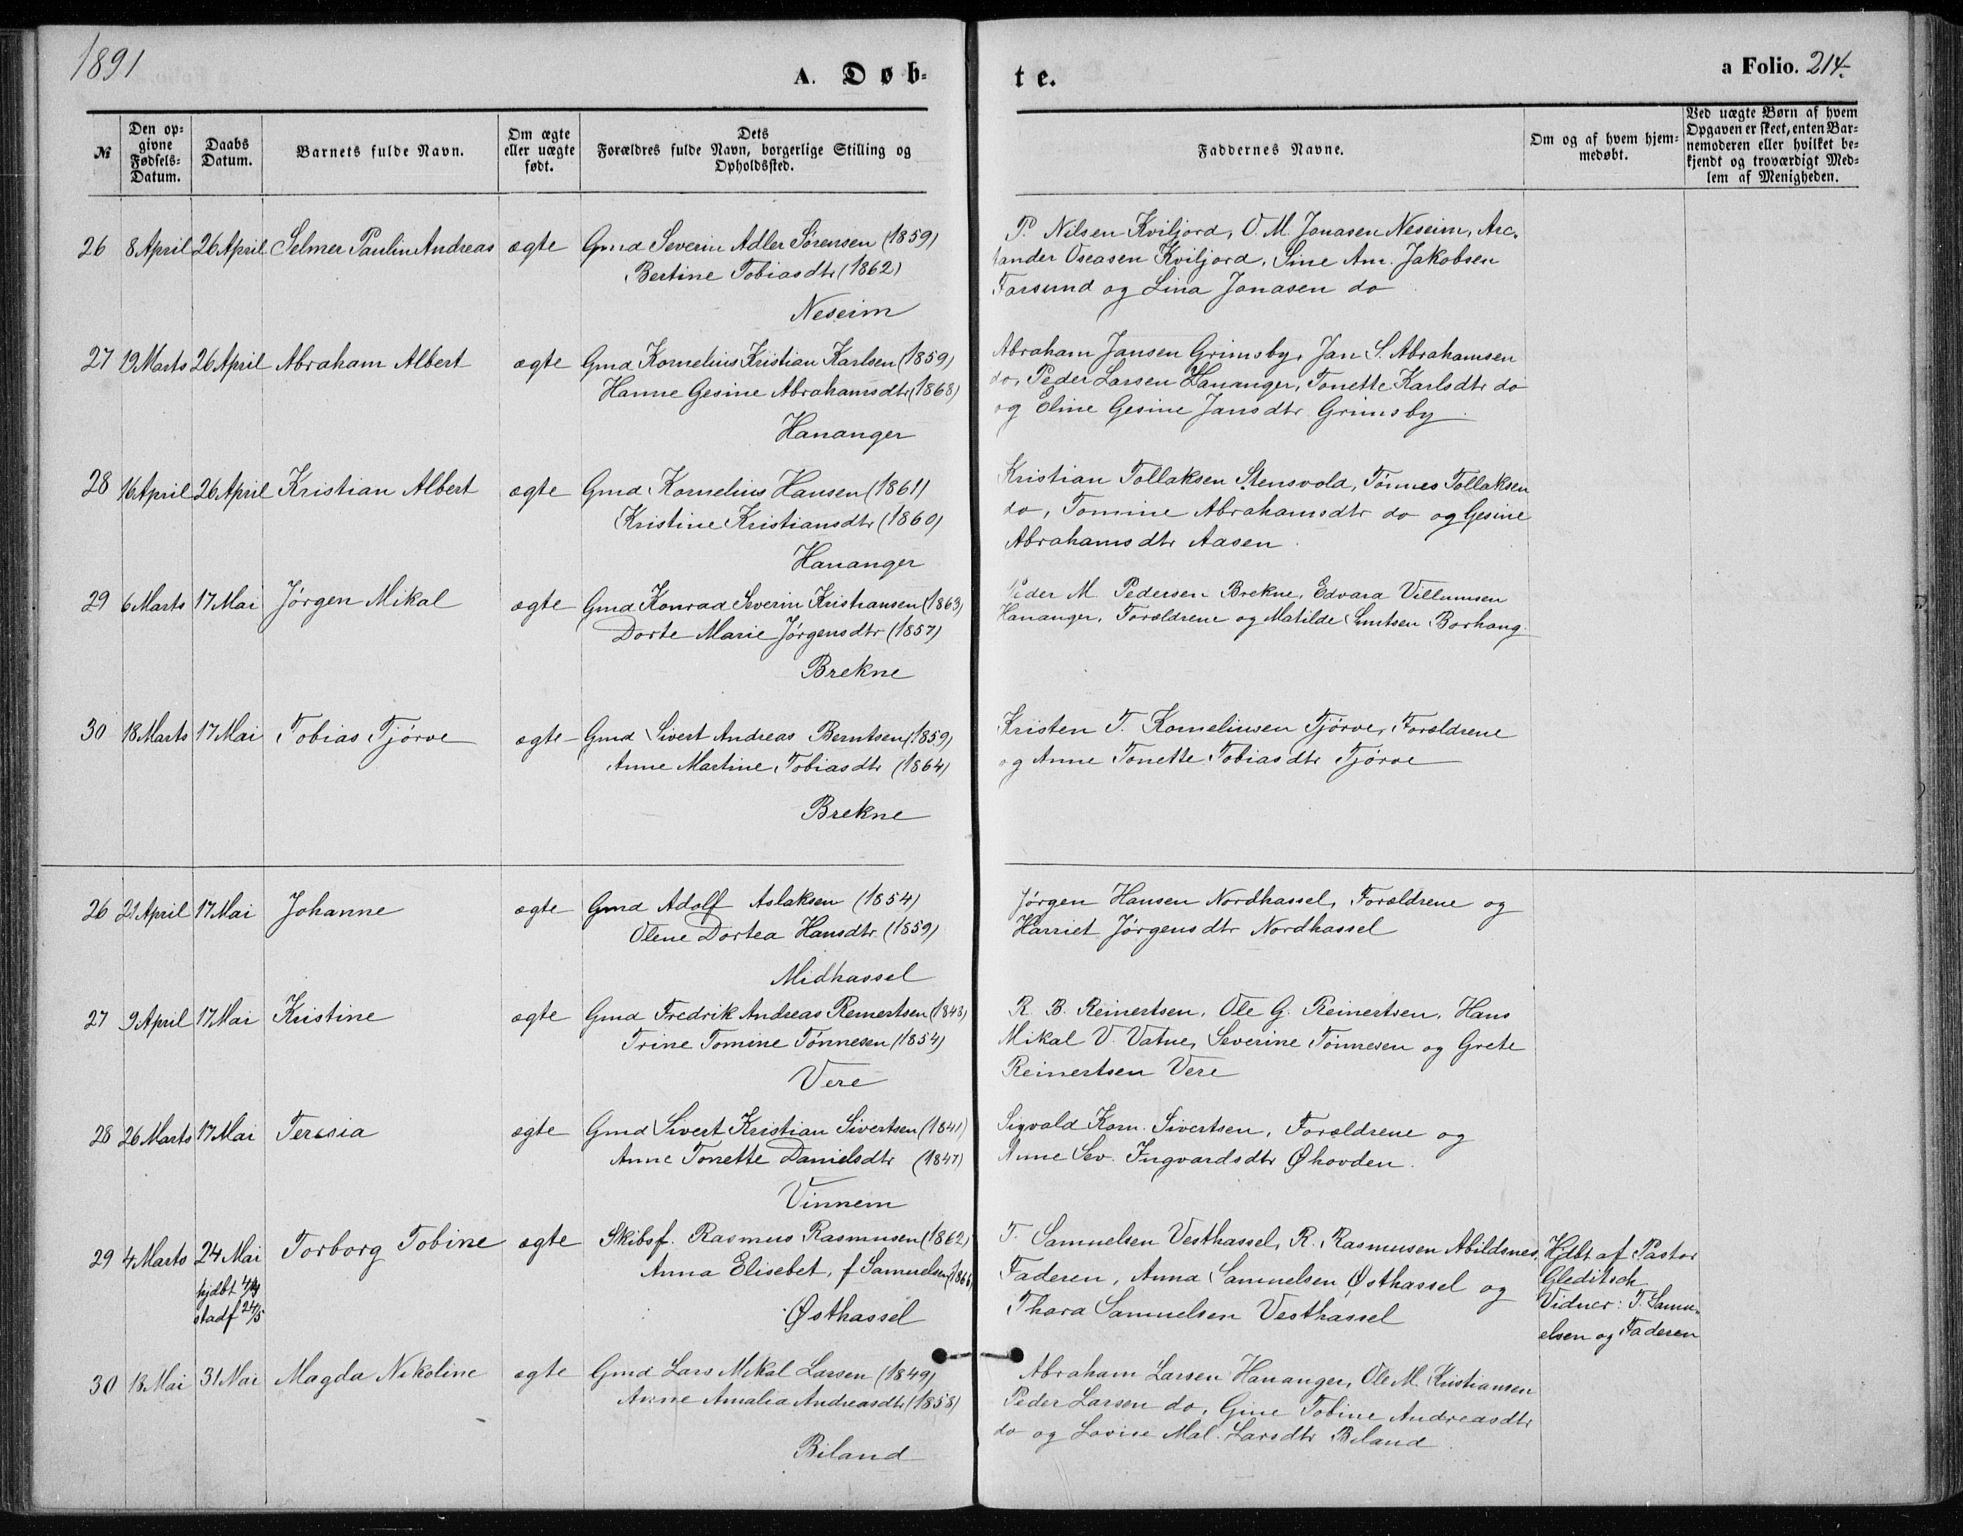 1891
A. Døb-
te.
a Folio. 214.
№
Den op-
givne
Fødsels-
Datum.
Daabs
Datum.
Barnets fulde Navn.
Om ægte
eller uægte
født.
Dets
Forældres fulde Navn, borgerlige Stilling og
Opholdssted.
Faddernes Navne.
Om og af hvem hjem-
medøbt.
Ved uægte Børn af hvem
Opgaven er skeet, enten Bar-
nemoderen eller hvilket be-
kjendt og troværdigt Med-
lem af Menigheden.
26 8 April 26 April Selmer Paulin Andreas ægte Gmd Severin Adler Sørensen (1859)
Bertine Tobiasdtr (1862)
Neseim
P. Nilsen Kviljord, O. M. Jonasen Neseim, Arc-
tander Oseasen Kviljord, Sine An. Jakobsen
Farsund og Lina Jonasen do
27 19 Marts 26 April Abraham Albert ægte Gmd Kornelius Kristian Karlsen (1859)
Hanne Gesine Abrahamsdtr (1868)
Hananger
Abraham Jansen Grimsby, Jan S. Abrahamsen
do, Peder Larsen Hananger, Tonette Karlsdtr do
og Eline Gesine Jansdtr Grimsby
28 16 April 26 April Kristian Albert ægte Gmd Kornelius Hansen (1861)
Kristine Kristiansdtr (1860)
Hananger
Kristian Tollaksen Stensvold, Tønnes Tollaksen
do, Tomine Abrahamsdtr do og Gesine
Abrahamsdtr Aasen
29 6 Marts 17 Mai Jørgen Mikal ægte Gmd Konrad Severin Kristiansen (1863)
Dorte Marie Jørgensdtr (1857)
Brekne
Peder M. Pedersen Brekne, Edvard Villumsen
Hananger, Forældrene og Matilde Borhaug
30 18 Marts 17 Mai Tobias Tjørve ægte Gmd Sivert Andreas Berntsen (1859)
Anne Martine Tobiasdtr (1864)
Brekne
Kristen T. Korneliusen Tjørve, Forældrene
og Anne Tonette Tobiasdtr Tjørve
26 21 April 17 Mai Johanne ægte Gmd Adolf Aslaksen (1854)
Olene Dortea Hansdtr (1859)
Midhassel
Jørgen Hansen Nordhassel, Forældrene og
Harriet Jørgensdtr Nordhassel
27 9 April 17 Mai Kristine ægte Gmd Fredrik Andreas Reinertsen (1843)
Trine Tomine Tønnesen (1854)
Vere
R. B. Reinertsen, Ole G. Reinertsen, Hans
Mikal V. Vatne, Severine Tønnesen og Grete
Reinertsen Vere
28 26 Marts 17 Mai Teresia ægte Gmd Sivert Kristian Sivertsen (1841)
Anne Tonette Danielsdtr (1847)
Vinnem
Sigvald Korn. Sivertsen, Forældrene og
Anne Sev. Ingvardsdtr Øhovden.
29 4 Marts 24 Mai Torborg Tobine ægte Skibsf. Rasmus Rasmusen (1862)
hjdbt 4/4
stadf 24/5
Anna Elisebet, f Samuelsen (1866)
Østhassel
T. Samuelsen Vesthassel, R. Rasmusen Abildsnes,
Faderen, Anna Samuelsen Østhassel og
Thora Samuelsen Vesthassel
Hjdbt af Pastor
Gleditsch
Vidner: T. Samu-
elsen og Faderen
30 13 Mai 31 Mai Magda Nikoline ægte Gmd Lars Mikal Larsen (1849)
Anne Amalia Andreasdtr (1858)
Biland
Abraham Larsen Hananger, Ole M. Kristiansen
Peder Larsen do, Gine Tobine Andreasdtr
do og Lovise Mal. Larsdtr Biland